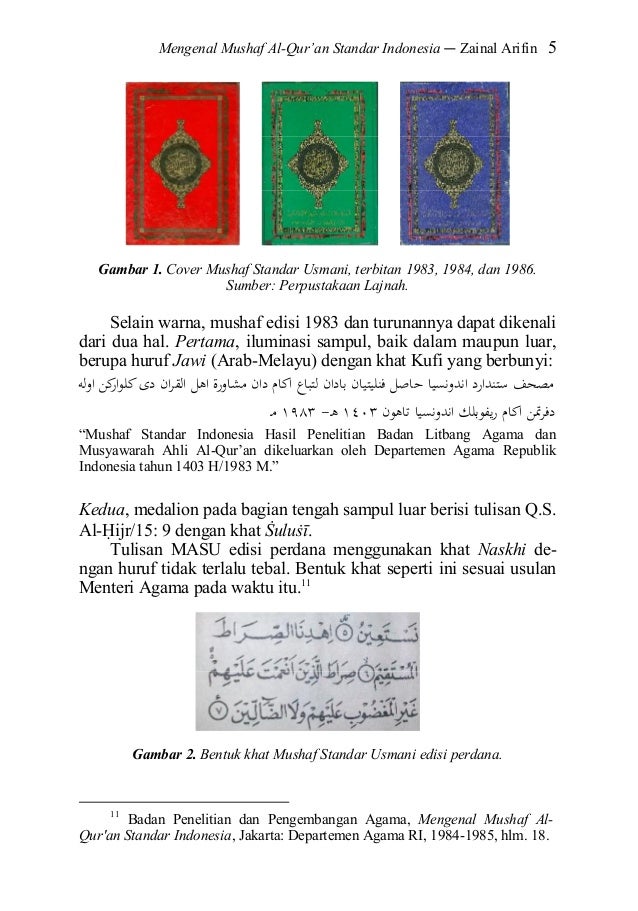 Mengenal Mushaf Al-Qur’an Standar Indonesia — Zainal Arifin 5
Gambar 1. Cover Mushaf Standar Usmani, terbitan 1983, 1984, dan 1986.
Sumber: Perpustakaan Lajnah.
Selain warna, mushaf edisi 1983 dan turunannya dapat dikenali
dari dua hal. Pertama, iluminasi sampul, baik dalam maupun luar,
berupa huruf Jawi (Arab-Melayu) dengan khat Kufi yang berbunyi:
مصحف ستندارد اندونسيا حاصل فنليتيان بادان لتباع اكام دان مشاورة اهل القران دى كلواركن اوله
دفرتمن اكام ريفوبلك اندونسيا تاهون ١٤٠٣ هـ– ١٩٨٣ مـ
“Mushaf Standar Indonesia Hasil Penelitian Badan Litbang Agama dan
Musyawarah Ahli Al-Qur’an dikeluarkan oleh Departemen Agama Republik
Indonesia tahun 1403 H/1983 M.”
Kedua, medalion pada bagian tengah sampul luar berisi tulisan Q.S.
Al-Ḥijr/15: 9 dengan khat Ṡuluṡī.
Tulisan MASU edisi perdana menggunakan khat Naskhi de-
ngan huruf tidak terlalu tebal. Bentuk khat seperti ini sesuai usulan
Menteri Agama pada waktu itu.11
نَسْتَعِيْنُ ٥ اِهْدِنَا الصِّرَاطَ
الْمُسْتَقِيْمَ ٦ صِرَاطَ الَّذِيْنَ اَنْعَمْتَ عَلَيْهِمْ
غَيْرِ الْمَغْضُوْبِ عَلَيْهِمْ وَلَا الضَّآلِّيْنَ ٧
Gambar 2. Bentuk khat Mushaf Standar Usmani edisi perdana.
11 Badan Penelitian dan Pengembangan Agama, Mengenal Mushaf Al-
Qur'an Standar Indonesia, Jakarta: Departemen Agama RI, 1984-1985, hlm. 18.